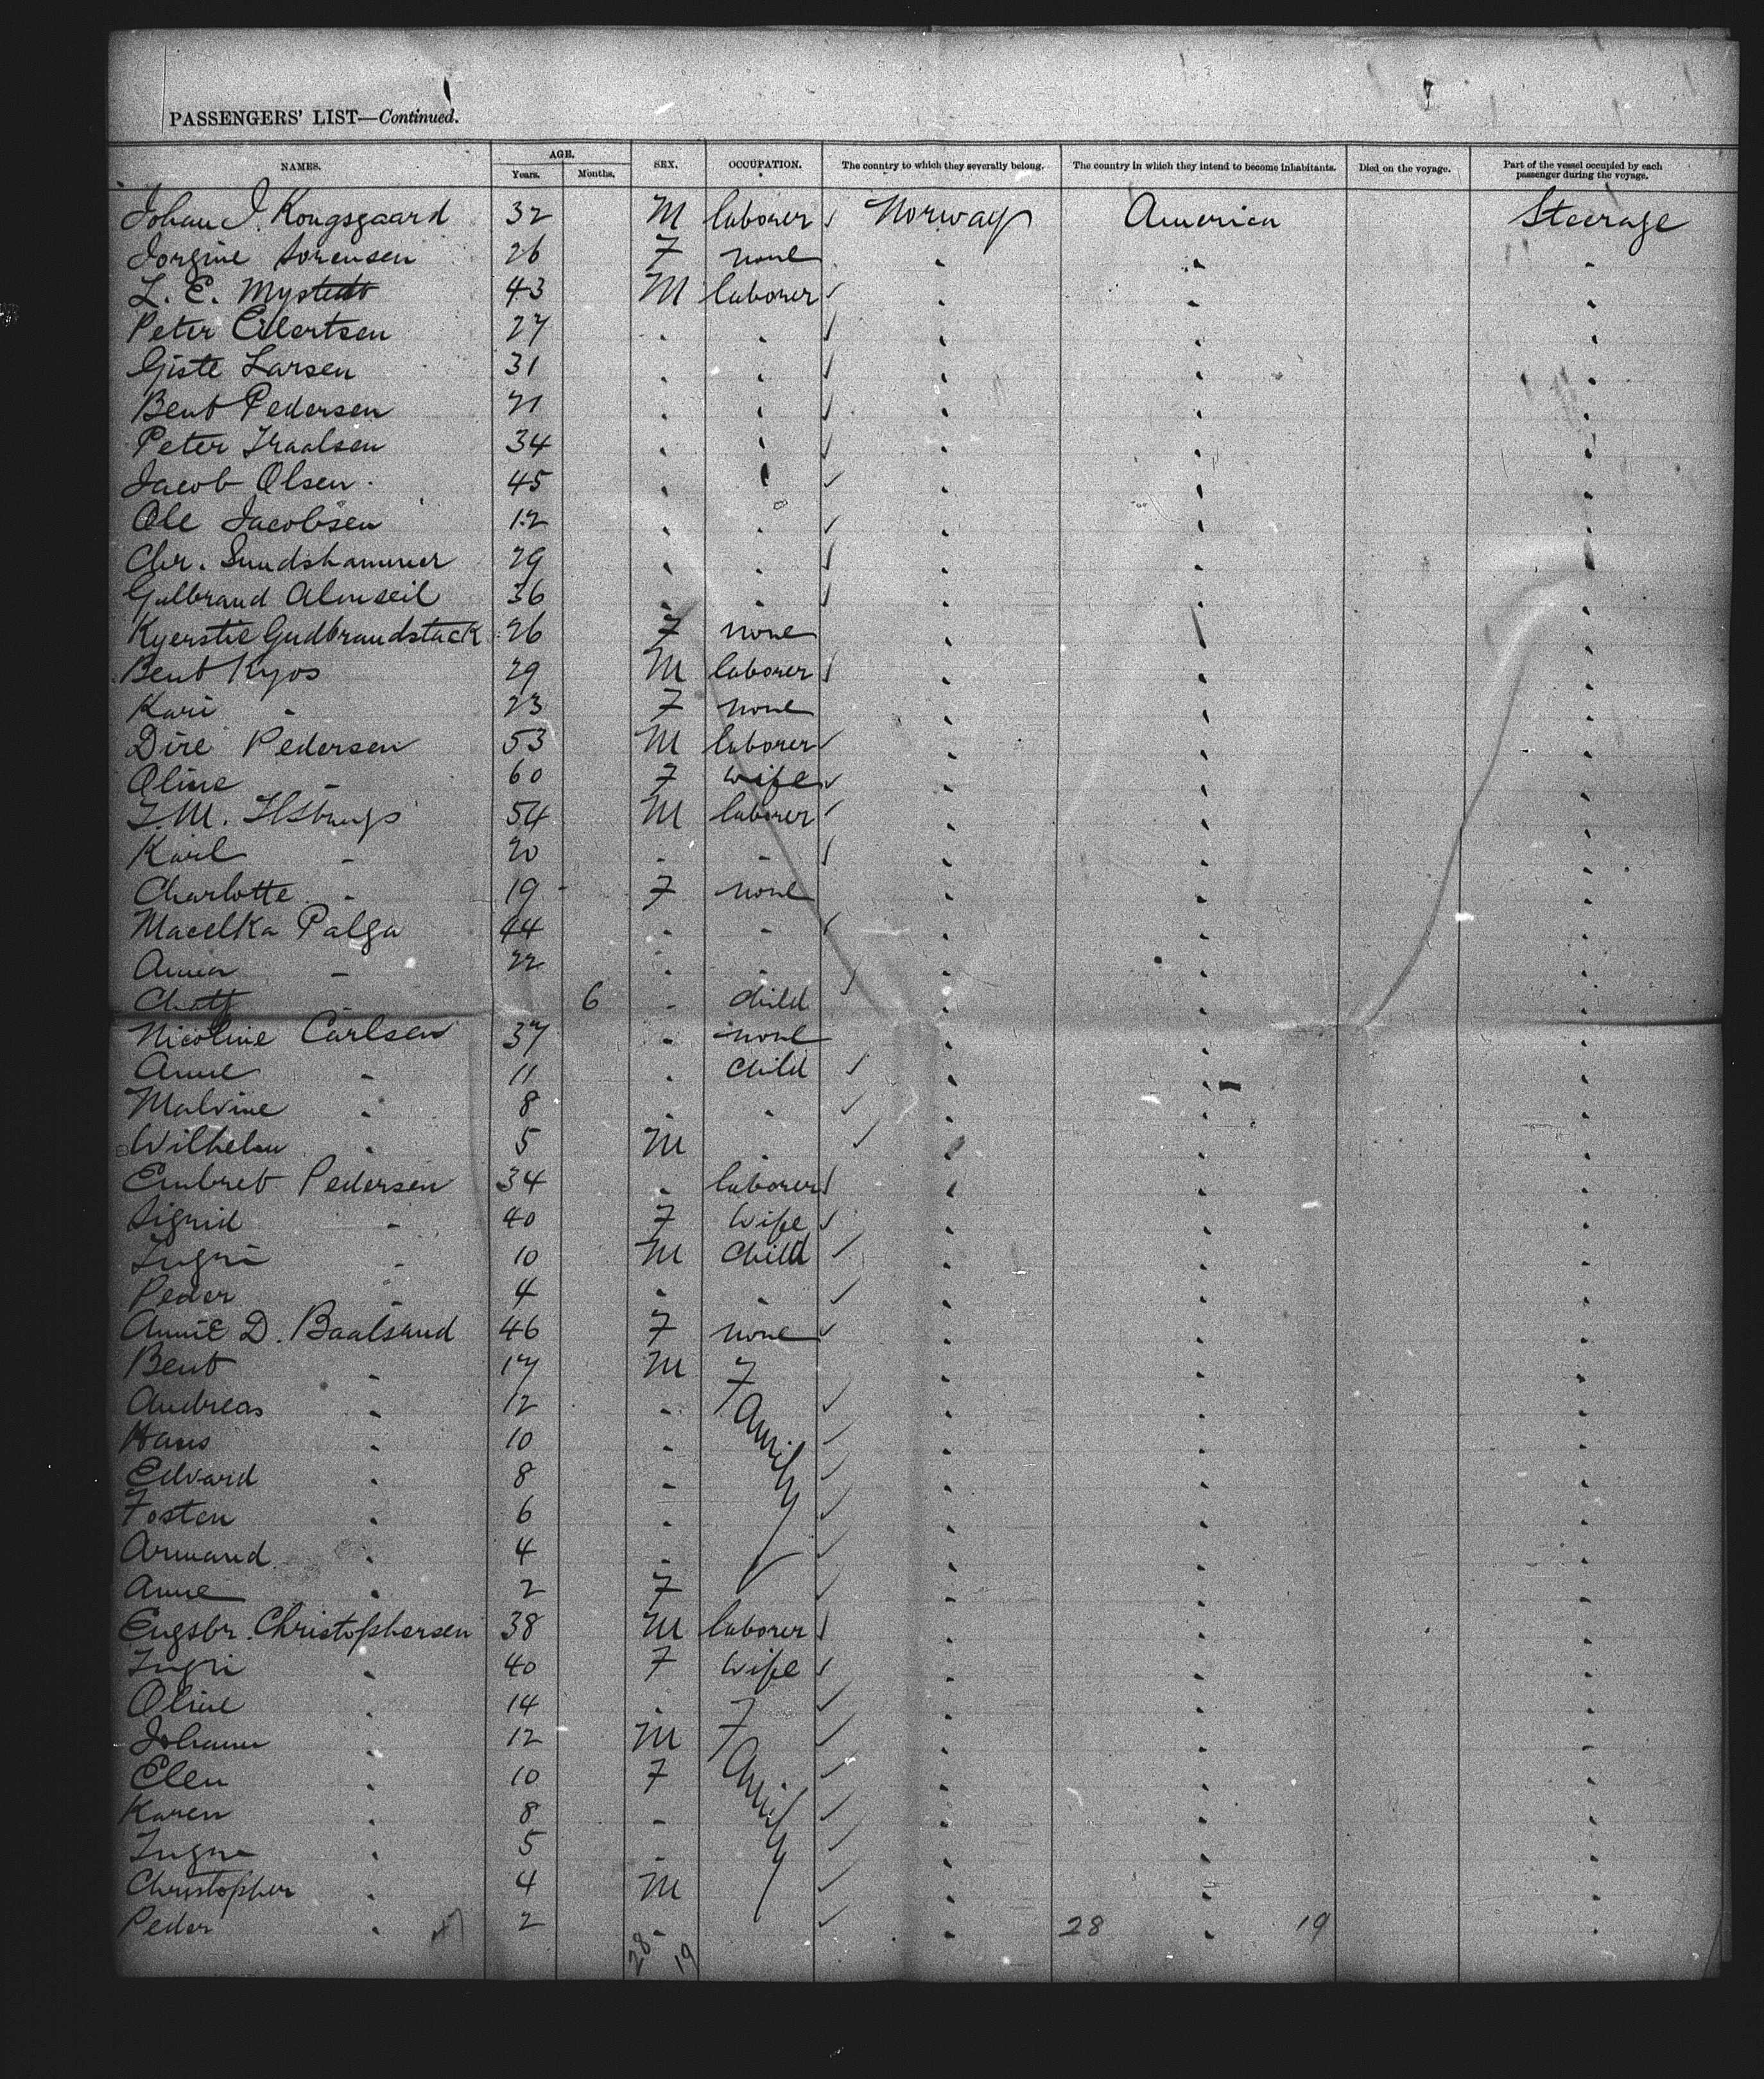 PASSENGERS' LIST—Continued.
NAMES. AGE. Years. Months. SEX. OCCUPATION. The country to which they severally belong. The country in which they intend to become inhabitants. Died on the voyage. Part of the vessel occupied by each passenger during the voyage.
Johan J. Kongsgaard 32 M laborer Norway America Steerage
Jorgine Sorensen 26 F none
L. E. Mystedt 43 M laborer
Peter Eilertsen 27
Giste Larsen 31
Bent Pedersen 21
Peter Traalsen 34
Jacob Olsen 45
Ole Jacobsen 12
Chr. Sundshammer 29
Gulbrand Alnuseil 36
Kyerstie Gudbrandstack 26 F none
Bent Kyos 29 M laborer
Kari " 23 F none
Dire Pedersen 53 M laborer
Oline " 60 F wife
54 M laborer
Karl " 20 " "
Charlotte " 19 F none
Macelka Palga 44 " "
Anna " 22 " "
" 6 " child
Nicoline Carlsen 37 " none
Anne " 11 " child
Malvine " 8 " "
Wilhelm " 5 M "
Embret Pedersen 34 " laborer
Sigrid " 40 F wife
Ingri " 10 M child
Peder " 4 " "
Annie D. Baalsrud 46 F none
Bent " 17 M Family
Andreas " 12 "
Hans " 10 "
Edvard " 8 "
Fosten " 6 "
Armand " 4 "
Anne " 2 F
Engebr. Christophersen 38 M laborer
Ingri " 40 F wife
Oline " 14 " Family
Johann " 12 M
Elen " 10 F
Karen " 8 "
Ingne " 5 "
Christopher " 4 M
Peder " 47 2 " 28 " 19
28 19